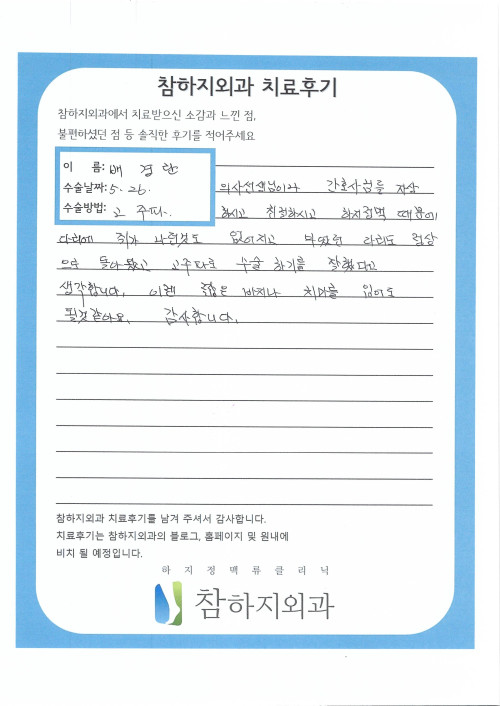 참하지외과 치료후기
참하지외과에서 치료받으신 소감과 느낀 점,
불편하셨던 점 등 솔직한 후기를 적어주세요
이 름: 배경란
수술날짜: 5. 26.
수술방법: 고주파.
의사선생님이나 간호사님들 자상
하시고 친절하시고 하지정맥 때문에
다리에 쥐가 나던것도 없어지고 부었던 다리도 정상
으로 돌아왔고 고주파로 수술 하기를 잘했다고
생각합니다. 이젠 짧은 바지나 치마를 입어도
될것같아요. 감사합니다.
참하지외과 치료후기를 남겨 주셔서 감사합니다.
치료후기는 참하지외과의 블로그, 홈페이지 및 원내에
비치 될 예정입니다.
하지정맥류클리닉
참하지외과